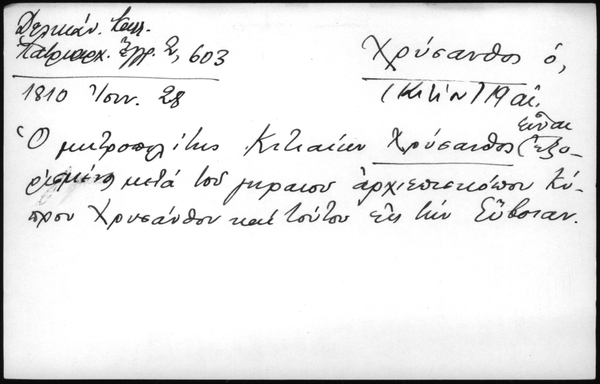 Δελικάν. Καλ.
Πατριαρχ. Ἔγγρ. 2, 603
1810 Ἰουν. 28
Χρύσανθος ὁ,
(Κιτίου) 19 αἰ.
Ὁ μητροπολίτης Κιτιαίων Χρύσανθος εἶναι ἐξο-
ρισμένος μετὰ τοῦ γηραιοῦ ἀρχιεπισκόπου Κύ-
πρου Χρυσάνθου καὶ τούτου εἰς τὴν Εὔβοιαν.